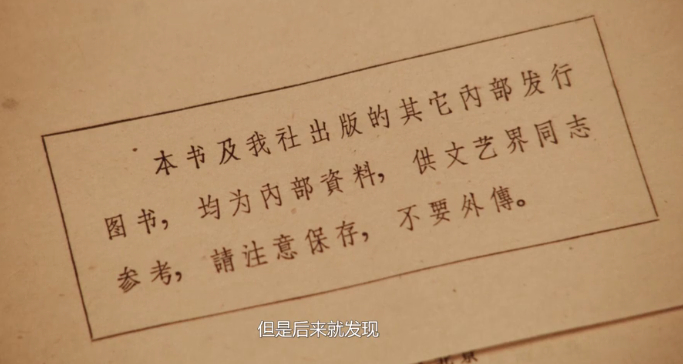 本书及我社出版的其它內部发行
图书，均为內部資料，供文艺界同志
参考，請注意保存，不要外傳。
但是后来就发现
北京